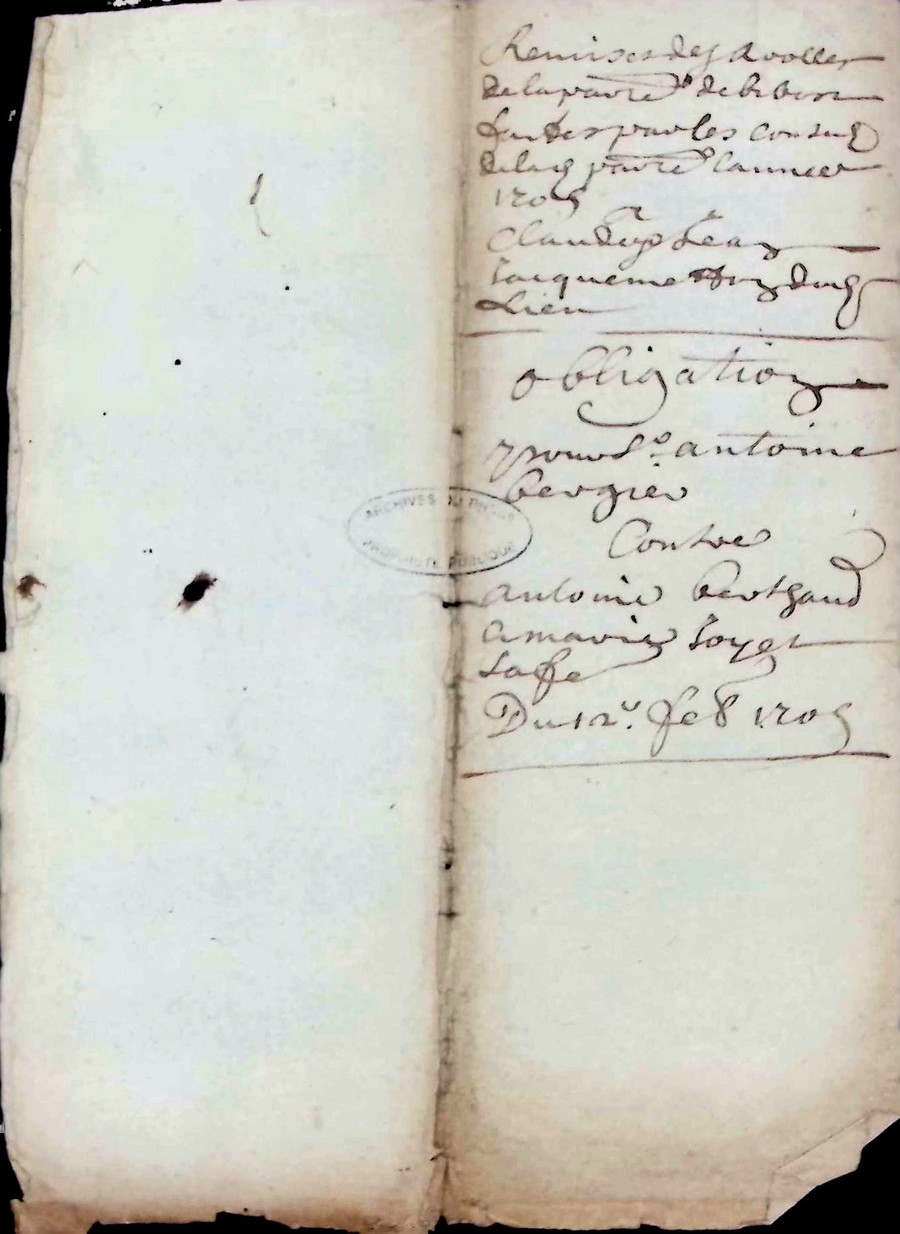 Remises des Roolles
de la parre de
faittes par les consulz
de lad parre lannee
1705
Claude Jean
Jacquemetton dud
Lieu
obligation
pour sr antoine
Bergier
Contre
antoine Berthaud
et marie Soyet
sa fe
Du 12e. feb 1705
ARCHIVES DU
PROPRIÉTÉ PUBLIQUE